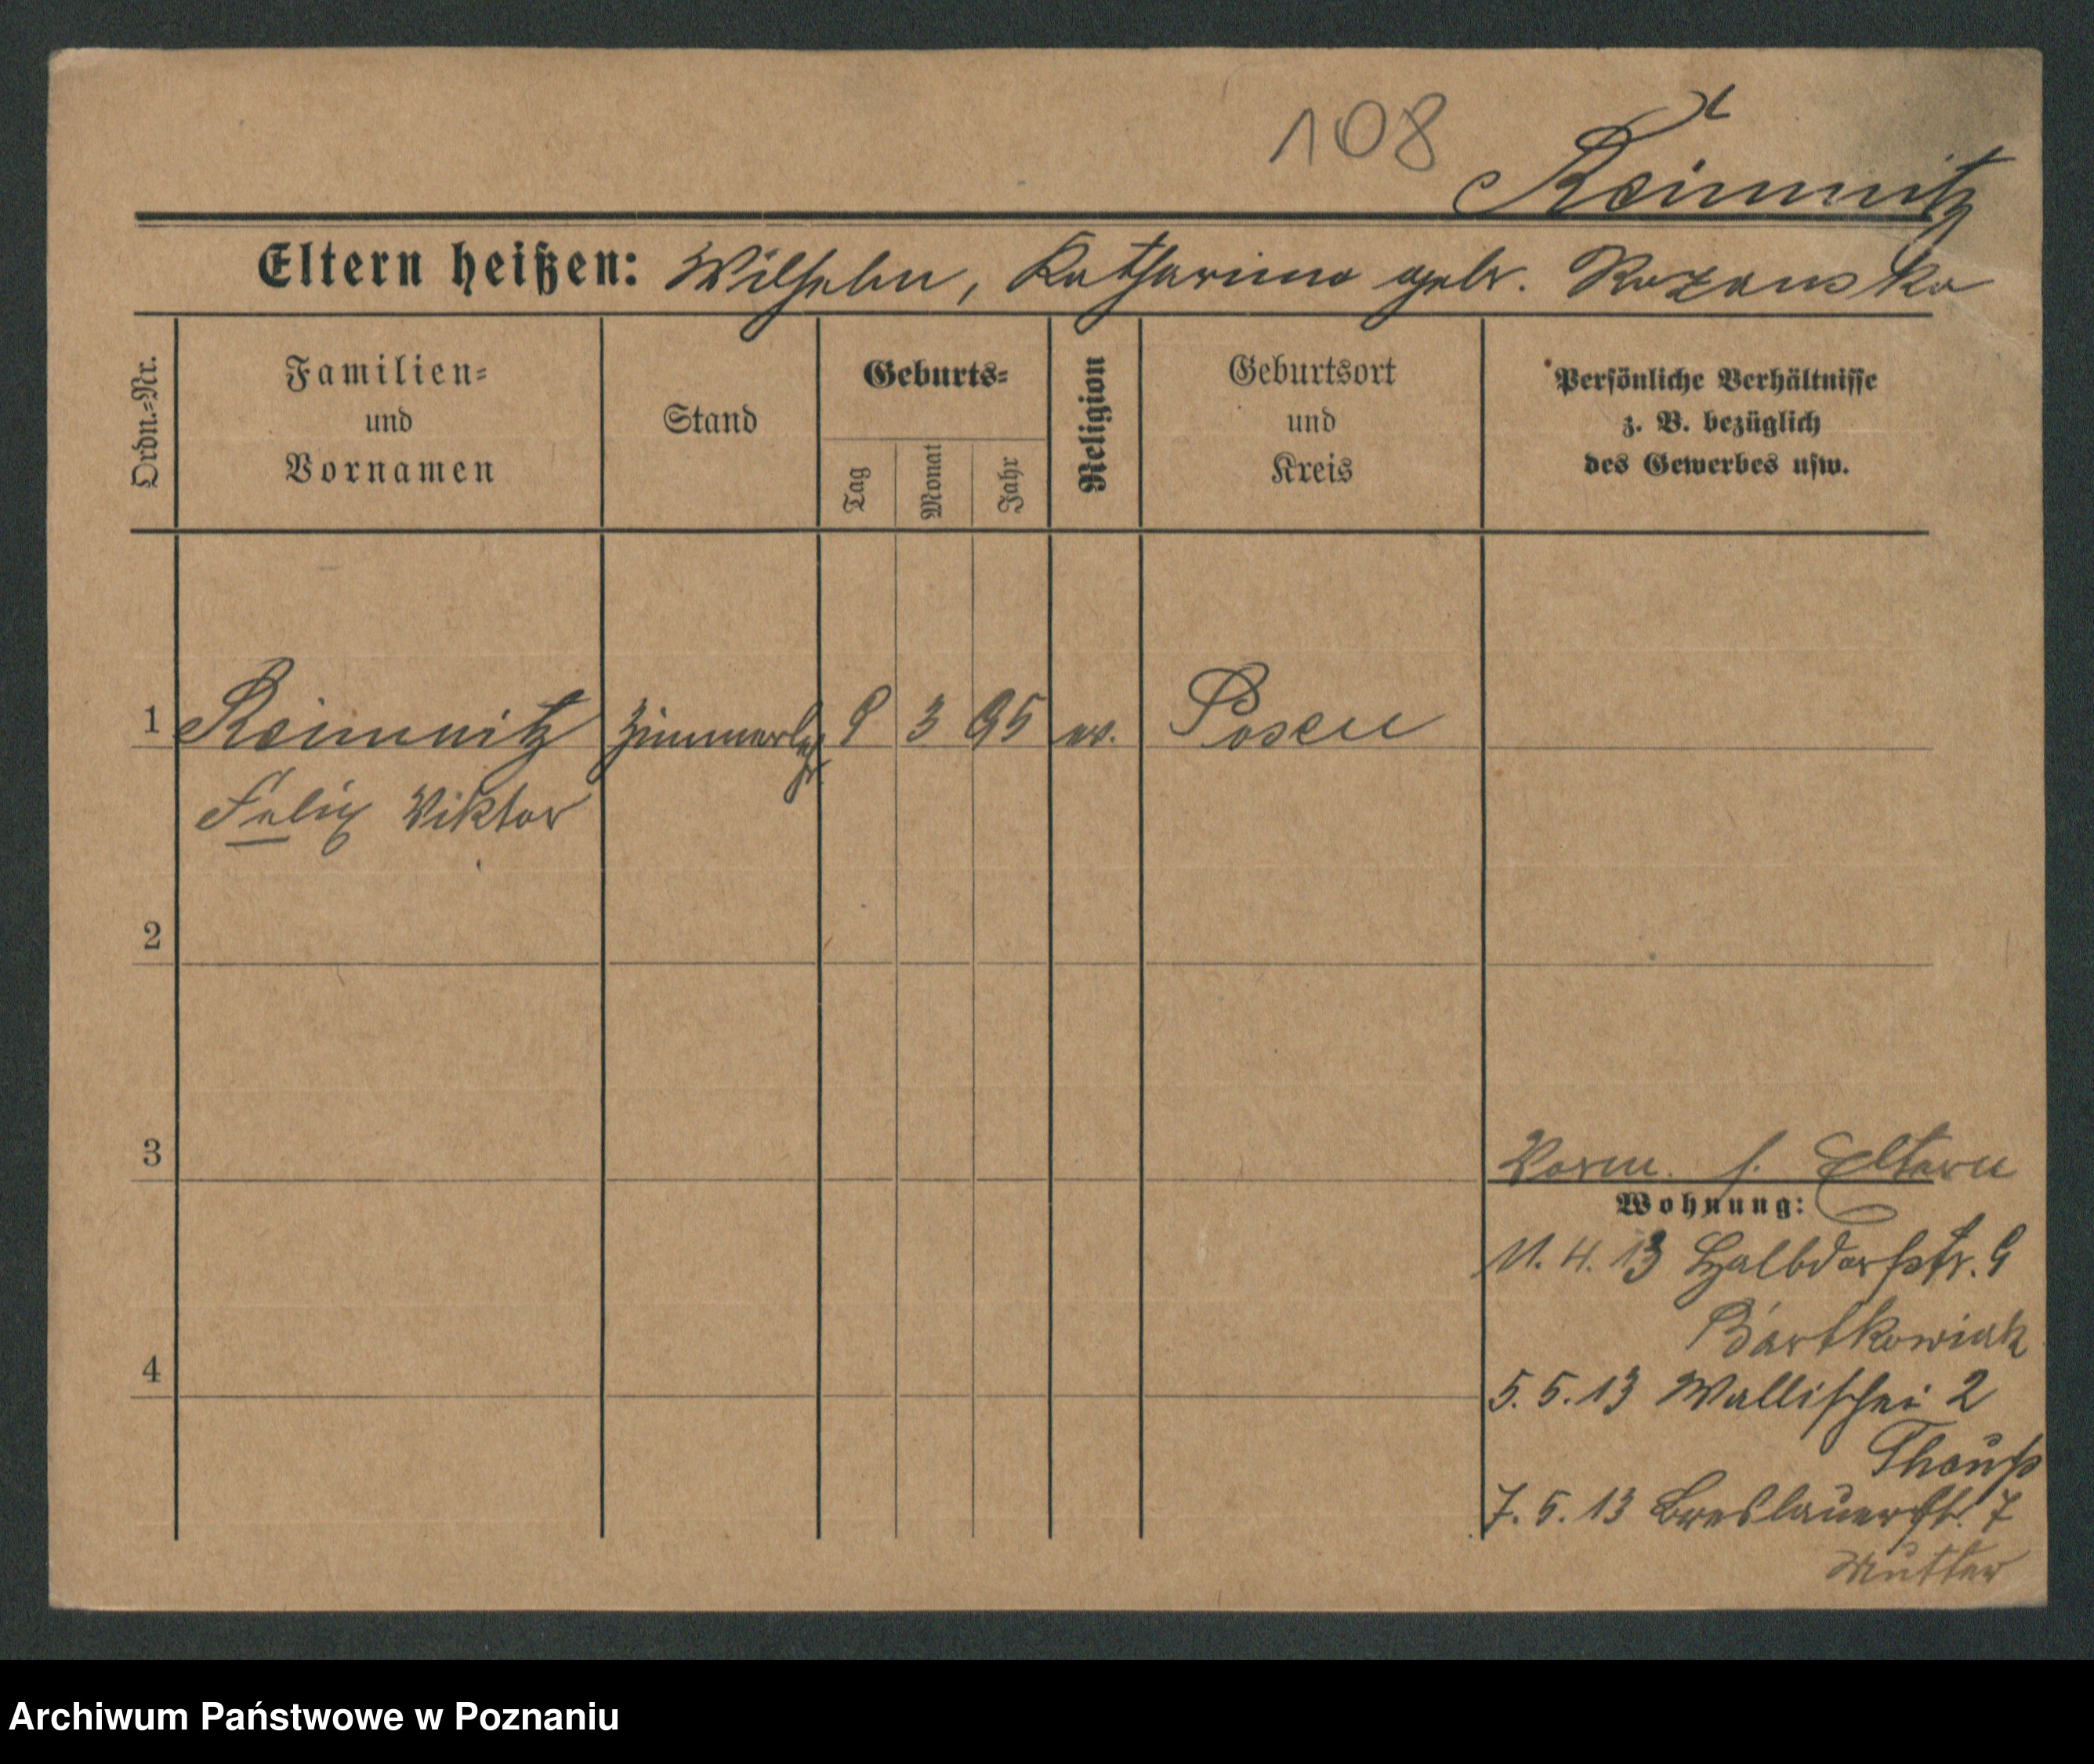 108
Reimnitz
Eltern heißen: Wilhelm, Katharina geb. Rozanska
Ordn.-Nr.
Familien-
und
Vornamen
Stand
Geburts-
Tag
Monat
Jahr
Religion
Geburtsort
und
Kreis
Persönliche Verhältnisse
z. B. bezüglich
des Gewerbes usw.
1 Reimnitz Zimmerlehr. 9 3 95 ev. Posen
Felix Viktor
2
3
Vorm. s. Eltern
Wohnung:
11. 4. 13 Halbdorfstr. 9
Bartkowiak
4
5. 5. 13 Wallischei 2
7. 5. 13 Breslauerstr. 7
Mutter
Archiwum Państwowe w Poznaniu